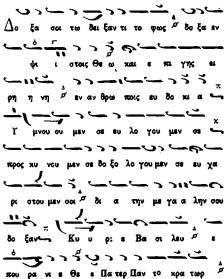 Δο ξα σοι τω δει ξαν τι το φως δο ξα εν
ψι στοις Θε ω και ε πι γης ει
ρη η νη εν αν θρω ποις ευ δο κι α
Υ μνου ου μεν σε ευ λο γου μεν σε
προς κυ νου μεν σε δο ξο λο γου μεν σε ευ χα
ρι στου μεν σοι δι α την με γα α λην σου
δο ξαν Κυ υ ρι ε Βα σι λευ ε
που ρα νι ε Θε ε Πα τερ Παν το κρα τορ